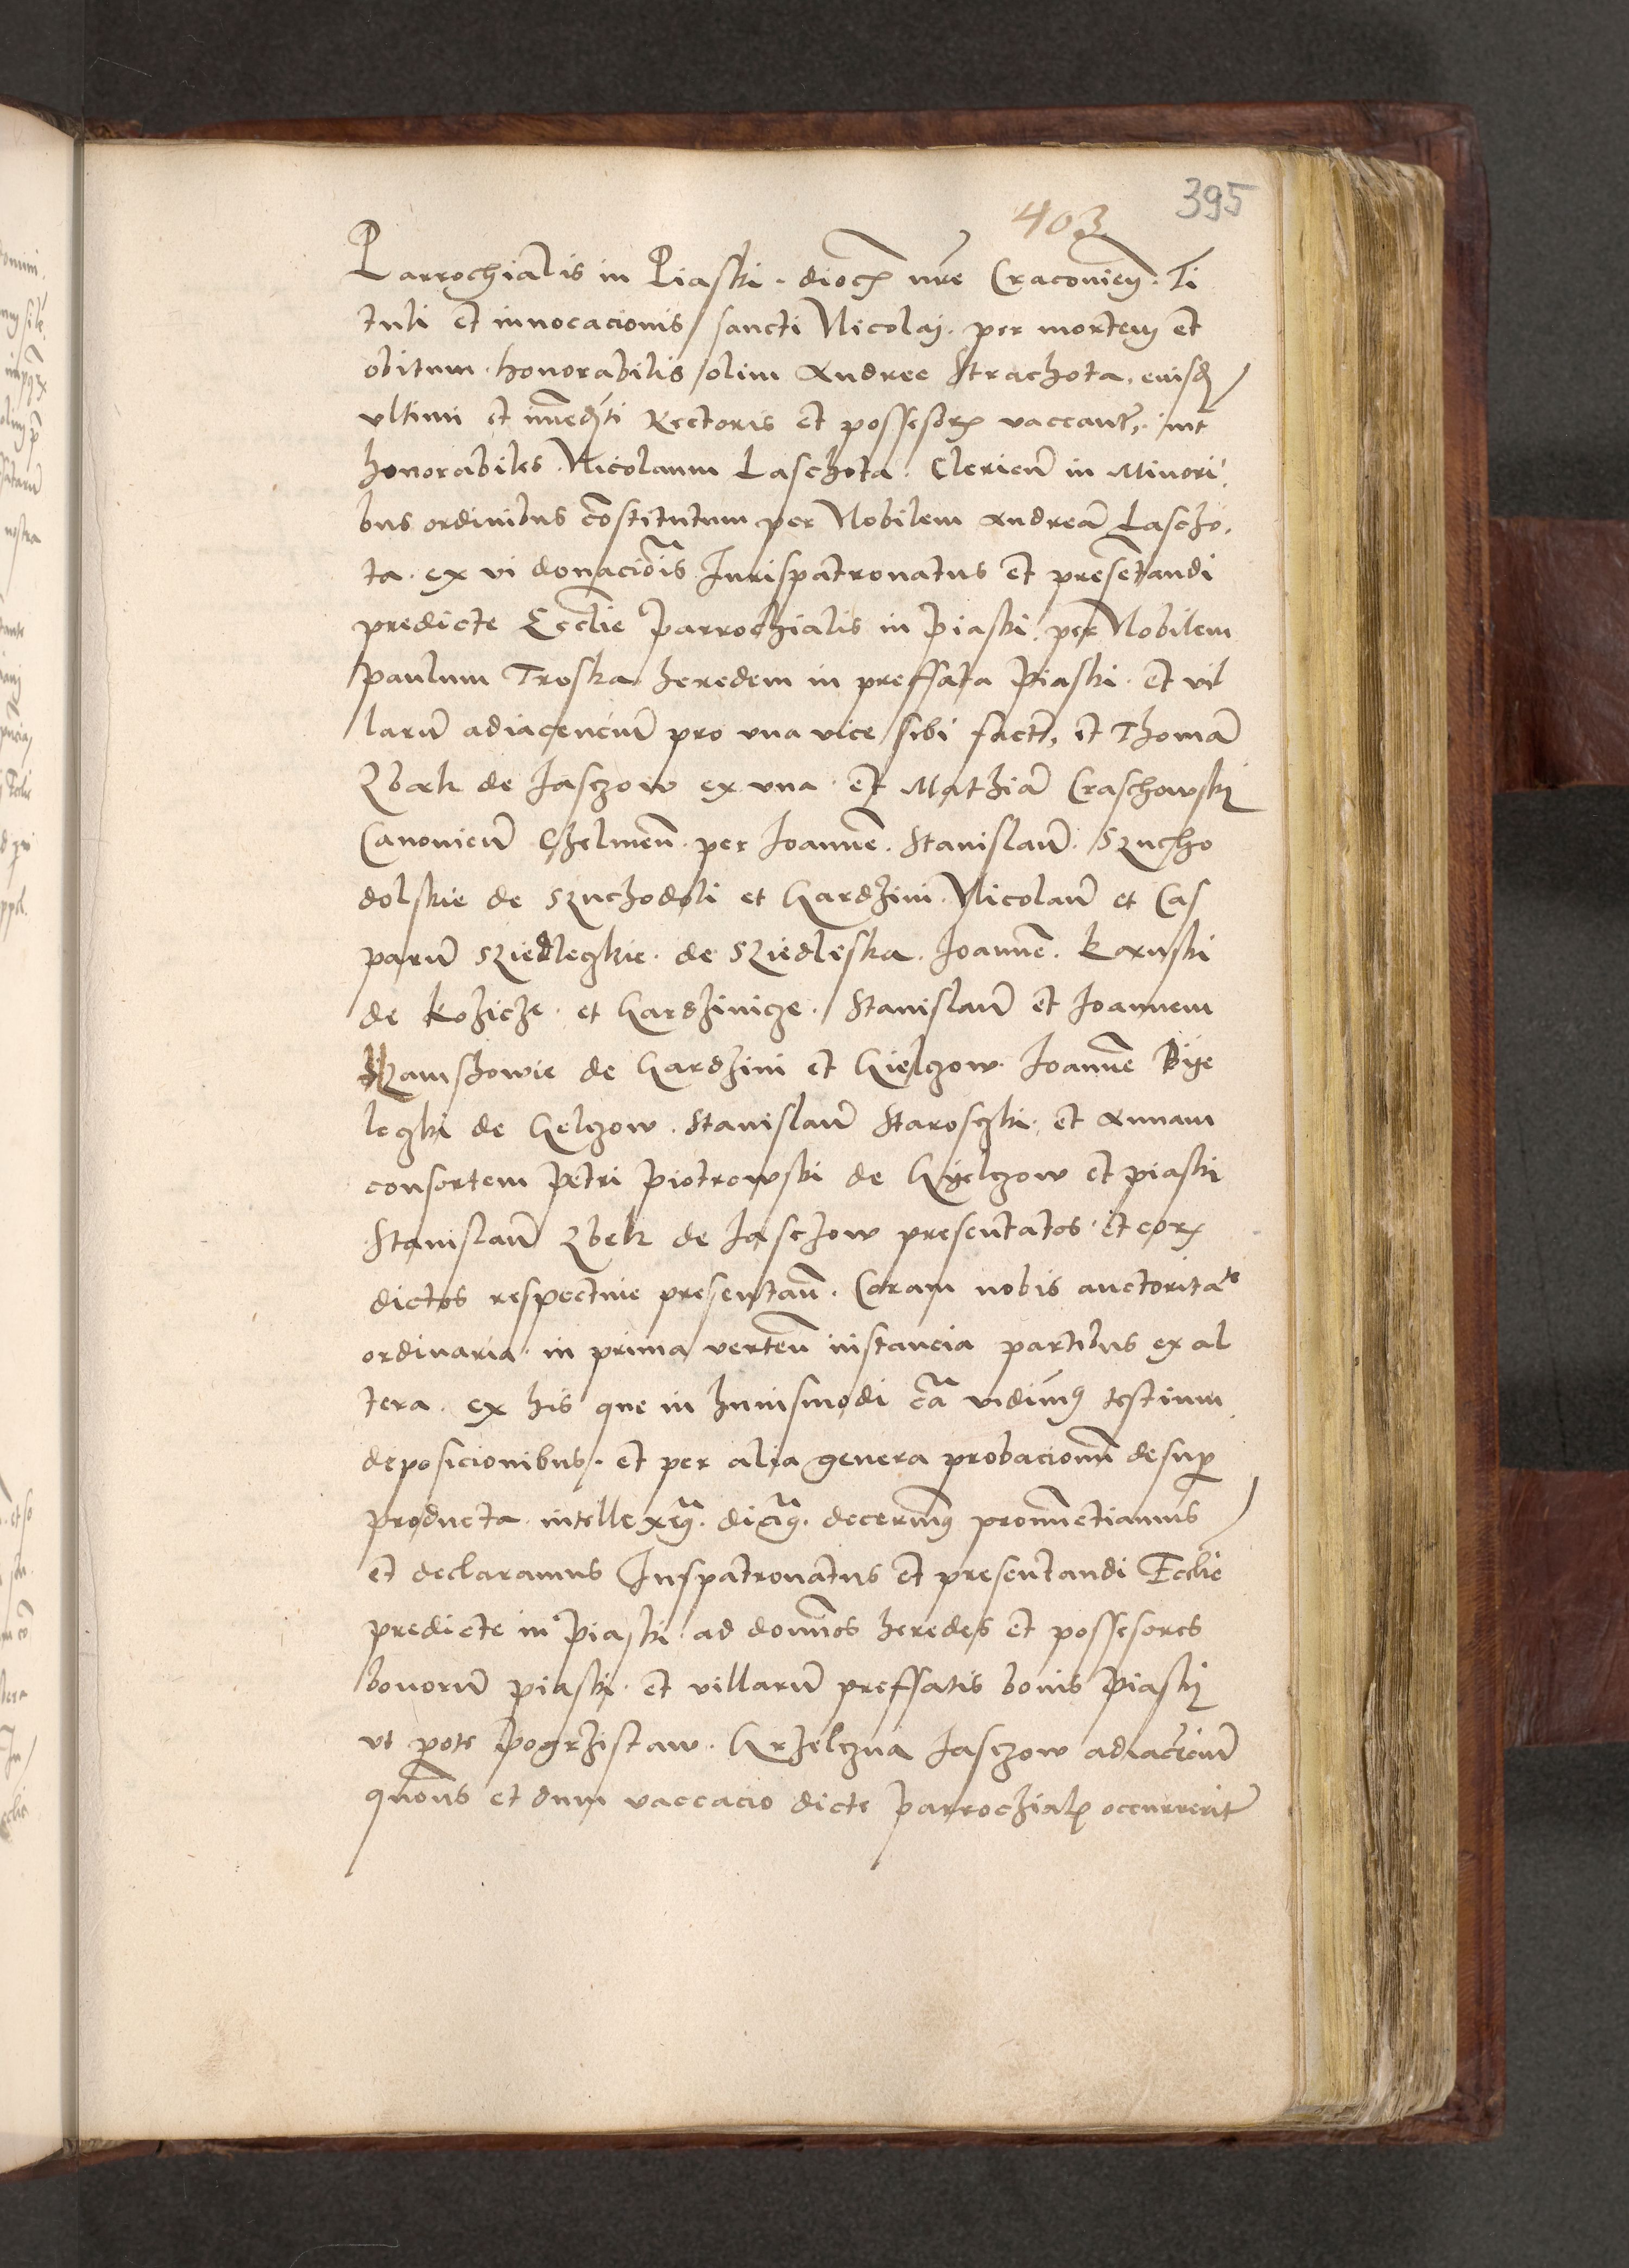 395
403
Parrochialis in Piaski. dioc nre Cracovien. Ti
tuli et invocacionis sancti Nicolaj. per mortem et
obitum. honorabilis olim Andree Strachota, euisd
ultimi et immediati Rectoris et possessor vaccant, int
honorabiles Nicolaum Laschota. Clericu in Minori
bus ordinibus costitutum per Nobilem Andrea Lascho
ta. ex vi donacionis Jurispatronatus et presetandi
predicte Ecclie Parrochialis in Piaski. per Nobilem
Paulum Troska heredem in preffata Piaski. et vil
laru adiacenciu pro una vice sibi fact, et Thoma
Zbak de Jasczow ex una. et Mathia Craschowski
Canonicu Chelmen. per Joanne. Stanislau. Szucho
dolskie de Szuchodoli et Gardzini. Nicolau et Cas
paru Sziedleczkie. de Sziedliska. Joanne. Karnski
de Kozicze. et Gardzinicze. Stanislau et Joannem
Szamszowie de Gardzini et Gielczow. Joanne Bye
leczki de Gelczow. Stanislau Starosczki. et Annam
consortem Petri Piotrowski de Gyelczow et Piaski
Stanislau Zbek de Jasczow presentatos. et eor
dictos respective presentan. Coram nobis auctoritate
ordinaria. in prima verten instancia partibus ex al
tera. ex his que in huiusmodi ca vidimus testium
deposicionibus. et per alia genera probacionu desup
producta intelleximus. dicimus. decernimus pronunctiamus
et declaramus Juspatronatus et presentandi Ecclie
predicte in Piaski. ad domnos heredes et possesores
bonoru Piaski. et villaru preffatis bonis Piaski
ut pote Pogrzistaw. Grzelczna Jasczow adiacenciu
quotiens et dum vaccacio dicte Parrochial occurrerit